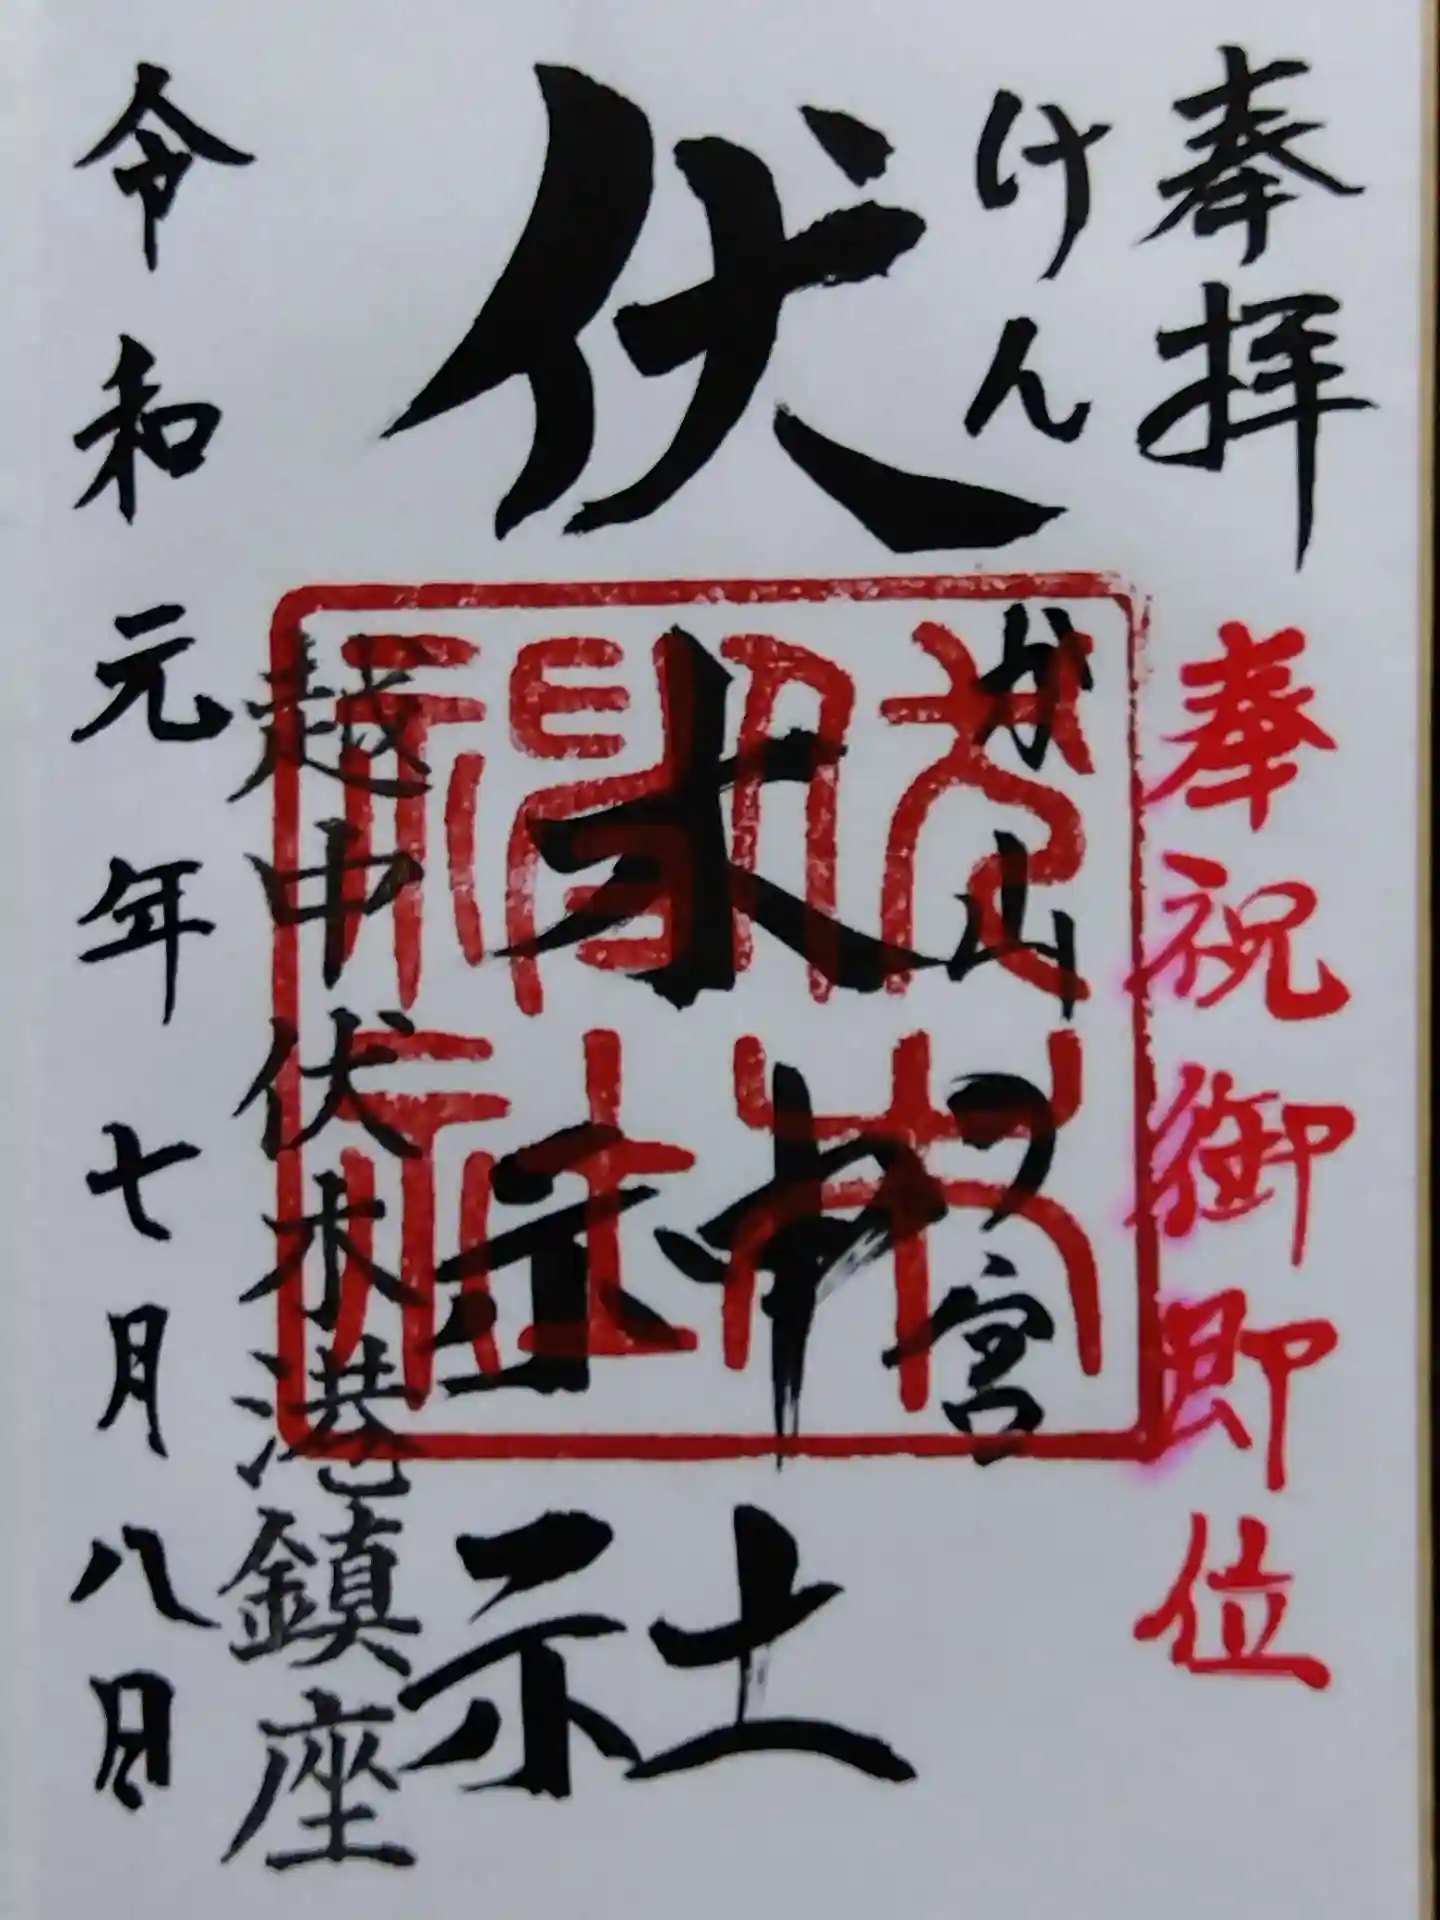 奉拝
奉祝御即位
けんか山の宮
伏木神社
伏木神社
越中伏木港鎮座
令和元年七月八日